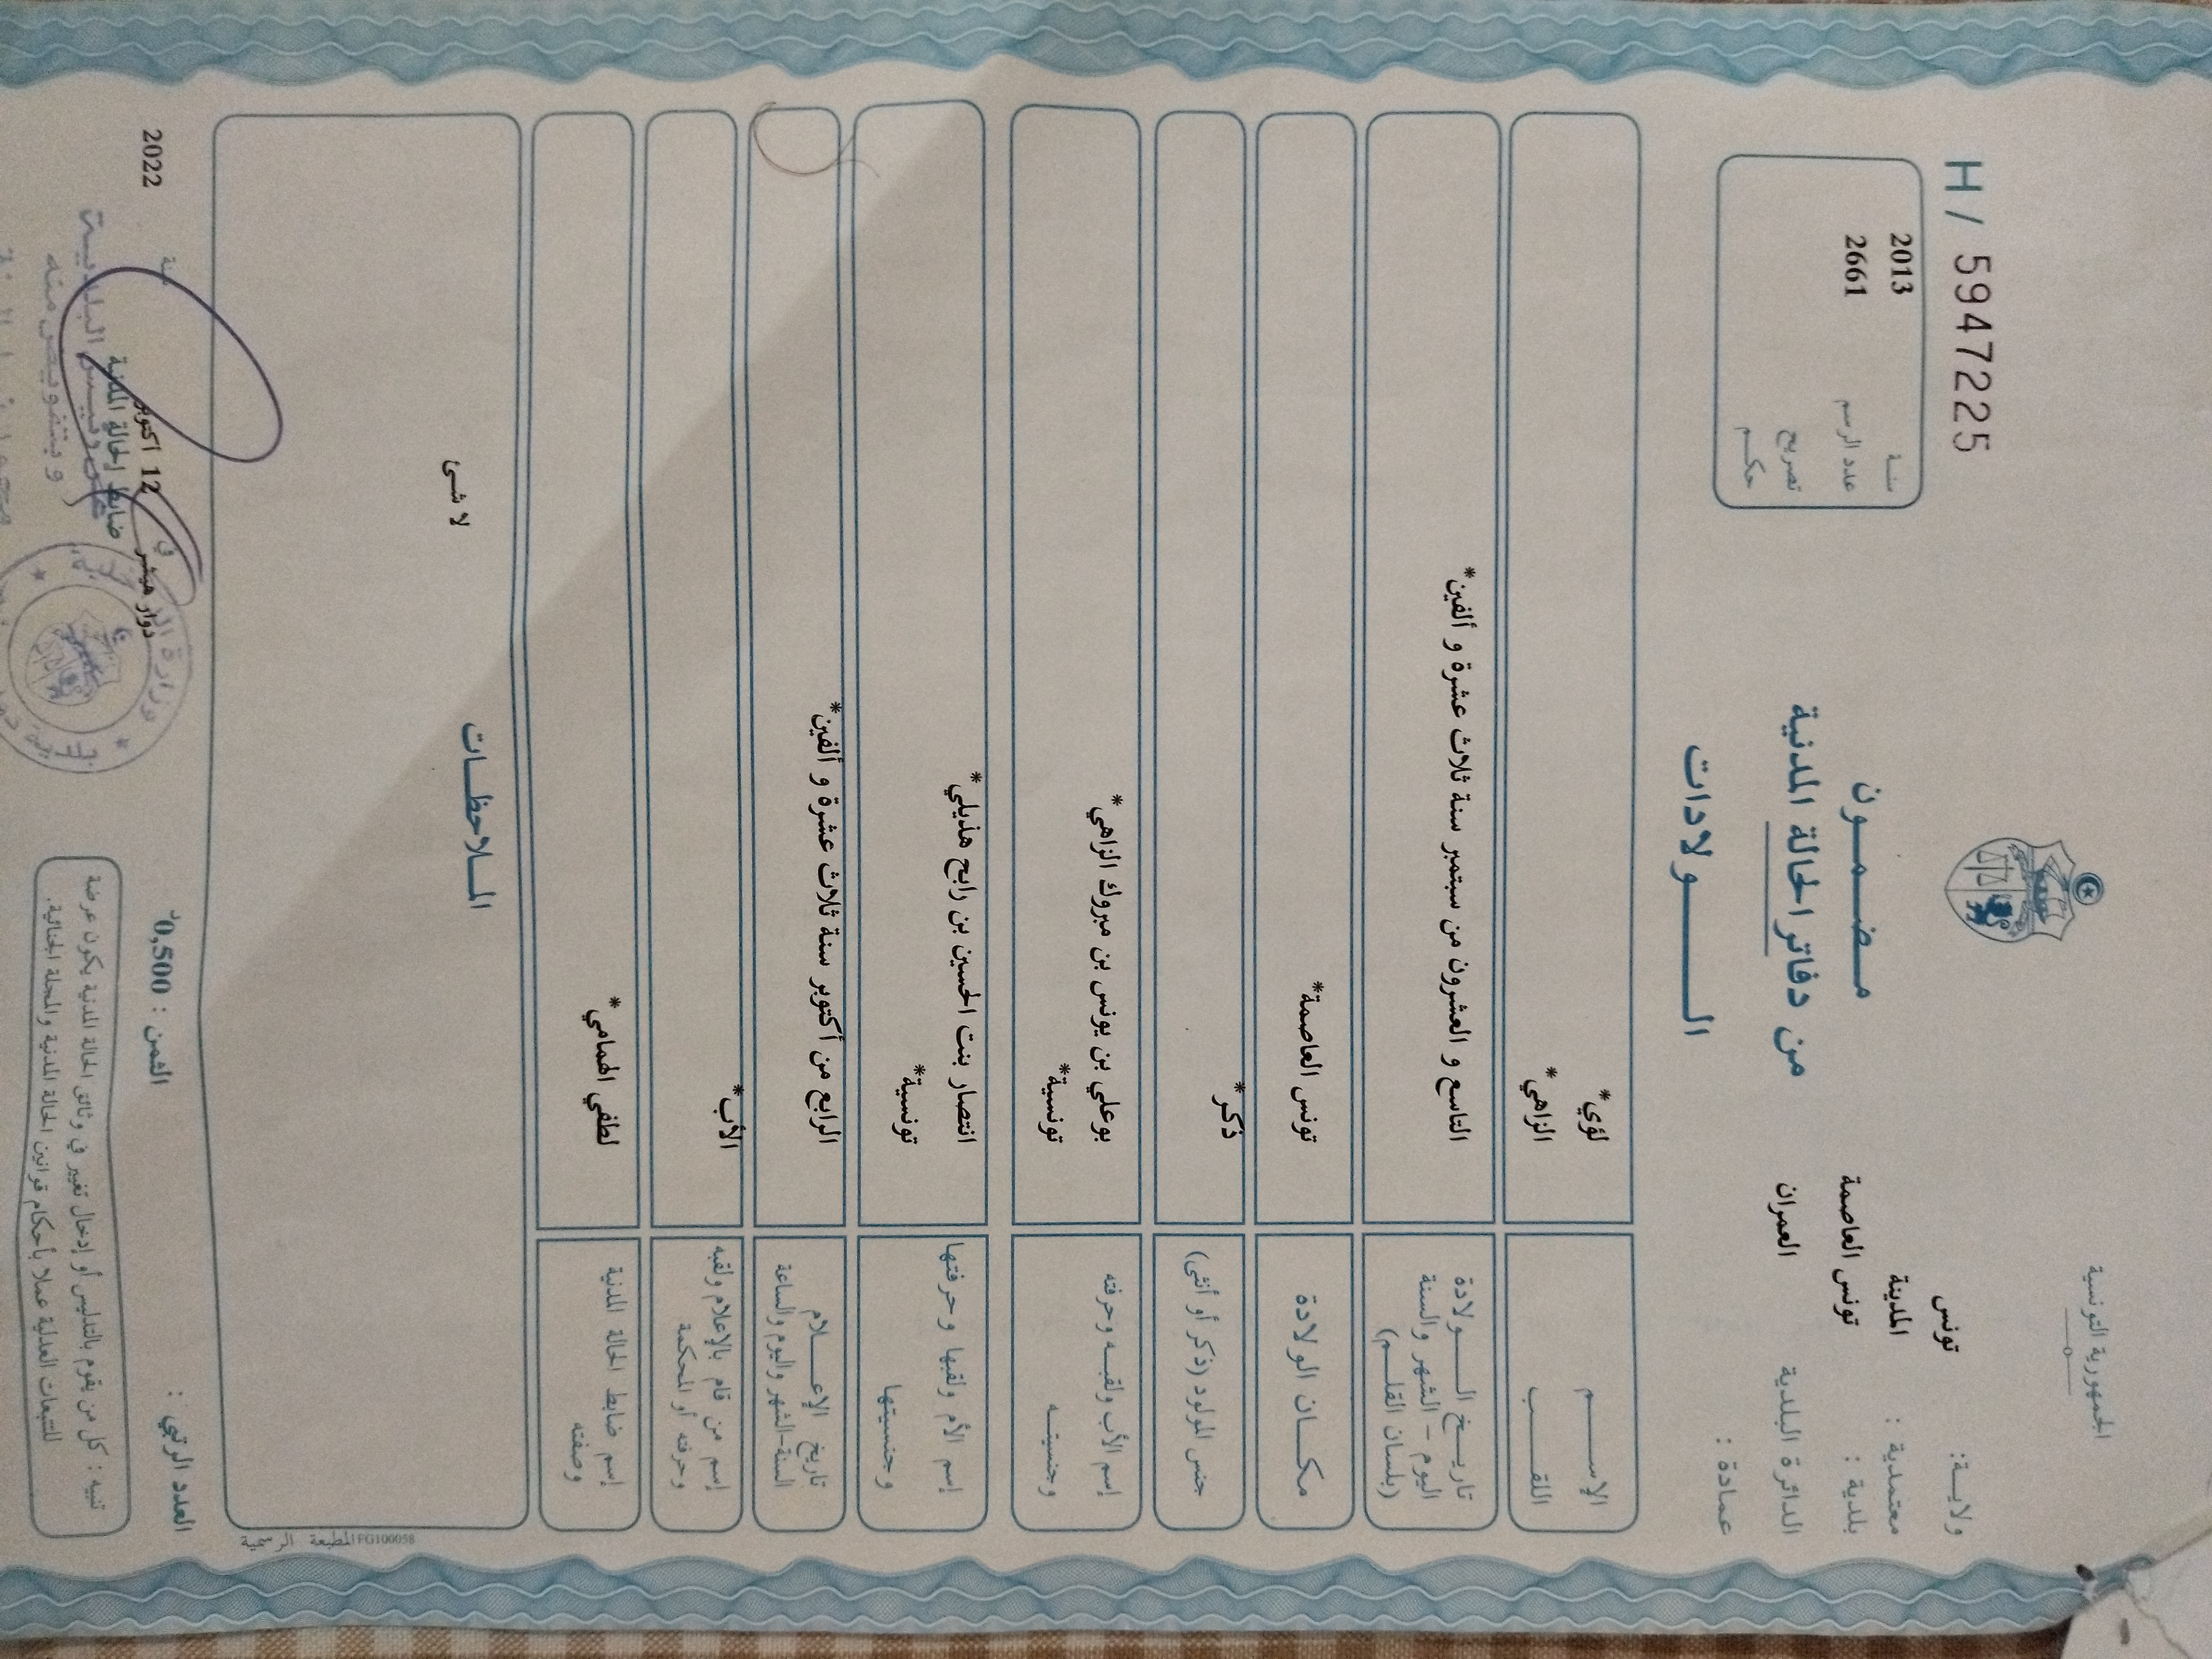 الجمهورية التونسية
H / 59472225
ولايـة: تونس
معتمدية : المدينة
بلدية : تونس العاصمة
الدائرة البلدية العمران
عمادة :
سنـة 2013
عدد الرسم 2661
تصريح
حكـم
مـضـمـون
من دفاتر الحالة المدنية
الـولادات
الإسـم لؤي*
اللقـب الزاهي*
تاريـخ الـولادة
اليوم - الشهر والسنة
(بلسان القلـم)
التاسع و العشرون من سبتمبر سنة ثلاث عشرة و ألفين*
مكـان الولادة تونس العاصمة*
جنس المولود (ذكر أو أنثى) ذكر*
إسم الأب ولقبـه وحرفته بوعلي بن يونس بن مبروك الزاهي*
وجنسيتـه تونسية*
إسم الأم ولقبها وحرفتها انتصار بنت الحسين بن رابح هذيلي*
وجنسيتها تونسية*
تاريخ الإعـلام
السنة-الشهر واليوم والساعة
الرابع من أكتوبر سنة ثلاث عشرة و ألفين*
إسم من قام بالإعلام ولقبه
وحرفته أو المحكمة
الأب*
إسم ضابط الحالة المدنية
وصفته
لطفي الهمامي*
المـلاحظـات
لا شئ
المطبعة الرسمية FG100058
العدد الرتبي :
الثمن : 0,500د
دوار هيشر في 12 اكتوبر سنة 2022
ضابط الحالة المدنية
تنبيه : كل من يقوم بالتدليس أو إدخال تغيير في وثائق الحالة المدنية يكون عرضة
للتتبعات العدلية عملا بأحكام قوانين الحالة المدنية والمجلة الجنائية.
عن رئيـس البلديـة
وبتفويض منه